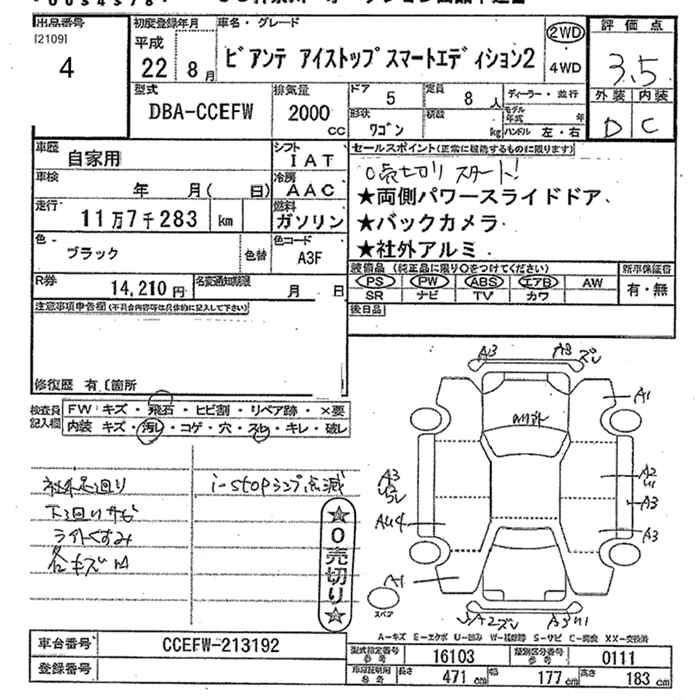 出品番号 初度登録年月 車名・グレード 2WD 評価点
[2109] 平成
4 22 年 8 月 ビアンテ アイストップスマートエディション2 4WD 3.5
型式 排気量 ドア 5 定員 8 人 ディーラー・並行 外装 内装
DBA-CCEFW 2000 CC 形状 ワゴン 積載 kg モデル年式 年 ハンドル 左・右 D C
車歴 自家用 シフト IAT セールスポイント(正常に機能するものに限ります)
車検 年 月( 日) 冷房 AAC 0売切り スタート!
★両側パワースライドドア
走行 11万7千283 km 燃料 ガソリン ★バックカメラ
色 ブラック 色替 色コード A3F ★社外アルミ
R券 14,210円 名変通知期限 月 日 装備品 (純正品に限り○をつけてください) 新車保証書
PS PW ABS エアB AW 有・無
SR ナビ TV カワ
注意事項申告欄(不具合内容等は具体的に記入して下さい) 後日品
修復歴 有〔箇所
検査員記入欄 FW キズ・飛石・ヒビ割・リペア跡・×要
内装 キズ・汚レ・コゲ・穴・スレ・キレ・破レ
A3 A3 ズレ
A1
i-stopランプ点滅
下回りサビ
ライトくすみ
各キズ
A3
A2
A3
AU4
A3
A1
★0売切り★
スペア
A2 ズレ A3
A-キズ E-エクボ U-凹み W-補修跡 S-サビ C-腐食 XX-交換済
車台番号 CCEFW-213192
型式指定番号 参考 16103 類別区分番号 参考 0111
登録番号
車庫証明用 参考 長さ 471 cm 幅 177 cm 高さ 183 cm